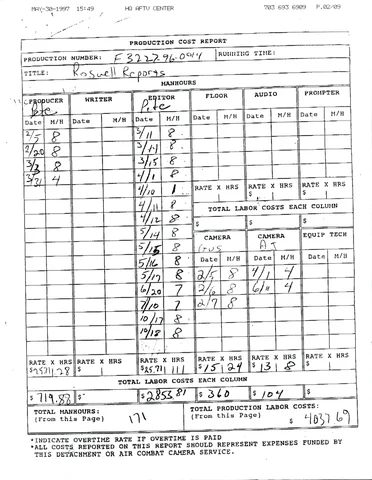 MAY-30-1997 15:49 HQ AFTV CENTER 703 693 6909 P.02/09
PRODUCTION COST REPORT
PRODUCTION NUMBER: F3227-96-0014 RUNNING TIME:
TITLE: Roswell Reports
MANHOURS
PRODUCER WRITER EDITOR FLOOR AUDIO PROMPTER
Pete Pete
Date M/H Date M/H Date M/H Date M/H Date M/H Date M/H
2/5 8 3/11 8
2/20 8 8
3/3 8 3/15 8
3/31 4 4/1 8
4/10 1 RATE X HRS RATE X HRS RATE X HRS
4/11 8 TOTAL LABOR COSTS EACH COLUMN
4/12 8 $ $ $
5/14 8 CAMERA CAMERA EQUIP TECH
5/15 8 Gus AJ
5/16 8 Date M/H Date M/H Date M/H
5/17 8 2/5 8 4/1 4
6/20 7 2/6 8 6/11 4
7/10 7 2/7 8
10/17 8
10/18 8
RATE X HRS RATE X HRS RATE X HRS RATE X HRS RATE X HRS RATE X HRS
$25.71 28 $ $25.71 111 $15 24 $13 8 $
TOTAL LABOR COSTS EACH COLUMN
$719.88 $- $2853.81 $360 $104 $
TOTAL MANHOURS: TOTAL PRODUCTION LABOR COSTS:
(From this Page) 171 (From this Page) $4037.69
*INDICATE OVERTIME RATE IF OVERTIME IS PAID
*ALL COSTS REPORTED ON THIS REPORT SHOULD REPRESENT EXPENSES FUNDED BY
THIS DETACHMENT OR AIR COMBAT CAMERA SERVICE.